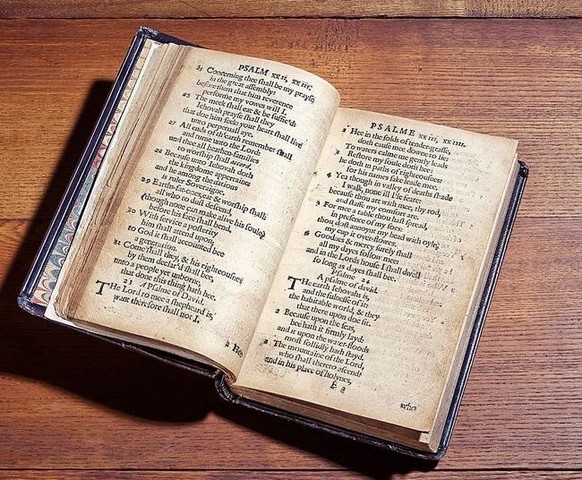 PSALM XXII, XXIII.
25 Concerning thee shall be my prayse
in the great assembly:
before them that him reverence
performe my vowes will I.
26 The meek shall eat & be suffic'd:
Iehovah prayse shall they
that doe him seek: your heart shall live
unto perpetuall aye.
27 All ends of th'earth remember shall
and turne unto the Lord:
and thee all heathen-families
to worship shall accord.
28 Because unto Iehovah doth
the kingdome appertaine:
and he among the nations
is ruler Soveraigne.
29 Earths-fat-ones, eat & worship shall:
all who to dust descend,
(though none can make alive his soule)
before his face shall bend.
30 With service a posterity
him shall attend upon;
to God it shall accounted bee
a generation.
31 Come shall they, & his righteousnes
by them declar'd shall bee,
unto a people yet unborne,
that done this thing hath hee.
23 A Psalme of David.
The Lord to mee a shepheard is,
want therefore shall not I.
2 Hee
PSALME XXIII, XXIIII.
2 Hee in the folds of tender-grasse,
doth cause mee downe to lie:
To waters calme me gently leads
3 Restore my soule doth hee:
he doth in paths of righteousnes:
for his names sake leade mee.
4 Yea though in valley of deaths shade
I walk, none ill I'le feare:
because thou art with mee, thy rod,
and staffe my comfort are.
5 For mee a table thou hast spread,
in presence of my foes:
thou dost annoynt my head with oyle,
my cup it over-flowes.
6 Goodnes & mercy surely shall
all my dayes follow mee:
and in the Lords house I shall dwell
so long as dayes shall bee.
Psalme 24
A psalme of david.
The earth Iehovahs is,
and the fulnesse of it:
the habitable world, & they
that there upon doe sit.
2 Because upon the seas,
hee hath it firmly layd:
and it upon the water-floods
most sollidly hath stayd.
3 The mountaine of the Lord,
who shall thereto ascend?
and in his place of holynes,
E 2
who